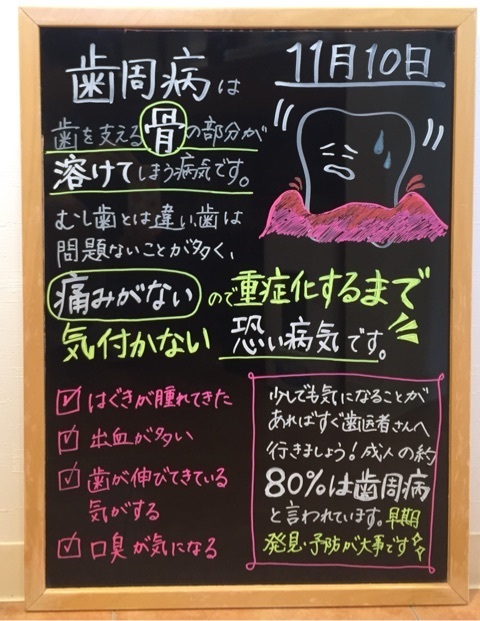 11月10日
歯周病は
歯を支える骨の部分が
溶けてしまう病気です。
むし歯とは違い、歯は
問題ないことが多く、
痛みがないので重症化するまで
気付かない恐い病気です。
はぐきが腫れてきた
出血が多い
歯が伸びてきている
気がする
口臭が気になる
少しでも気になることが
あればすぐ歯医者さんへ
行きましょう!成人の約
80%は歯周病
と言われています。早期
発見・予防が大事です